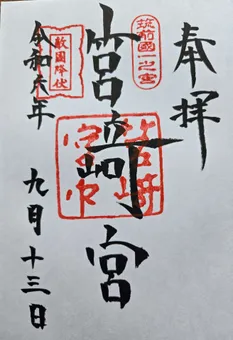 奉拝
筑前國一之宮
筥崎宮
敵國降伏
令和六年
九月十三日